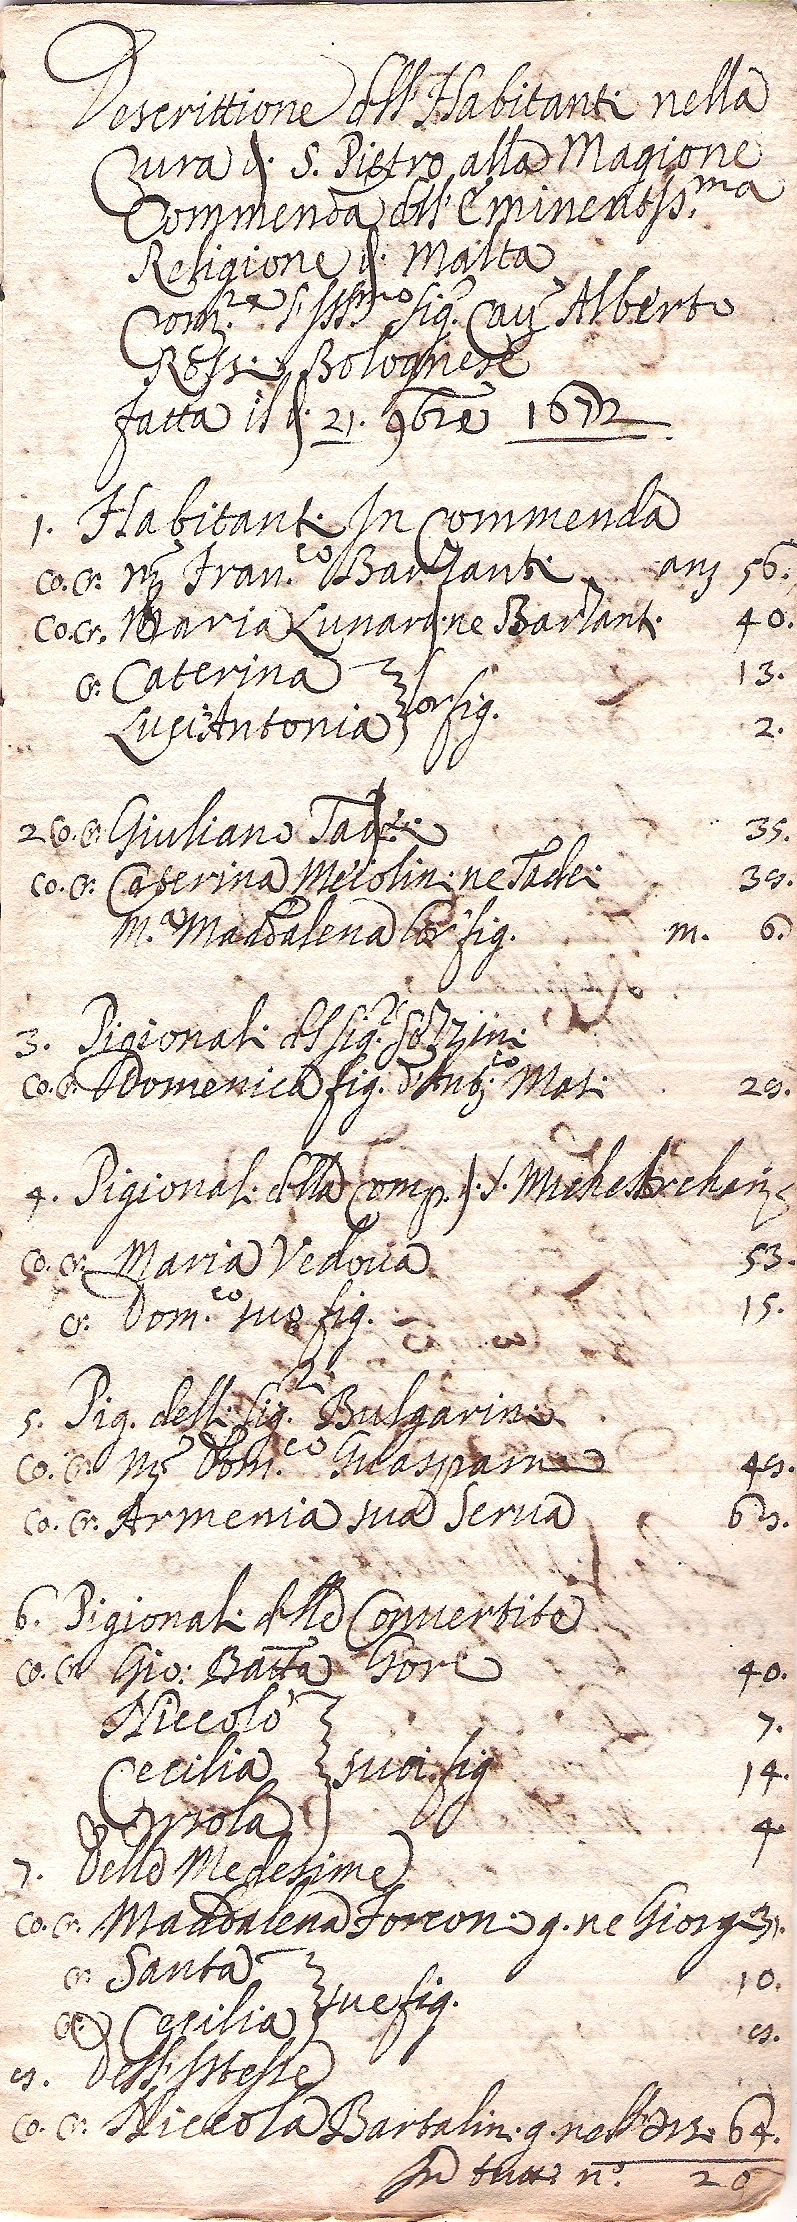 Descrittione dell'Habitanti nella
Cura di S. Pietro alla Magione
Commenda dell'Eminentiss.ma
Religione di Malta
Com.re l'Ill.mo Sig.r Cav.r Alberto
Rossi Bolognese
fatta il dì 21. 9bre 1672
1. Habitanti In Commenda
Co. Cr. Fran.co Barzanti anj 56.
Co. Cr. Maria Lunardi ne Barzanti 40.
Cr. Caterina 13.
Luci'Antonia lor fig. 2.
2 Co. Cr. Giuliano Tadei 35.
Co. Cr. Caterina ne Tadei 38.
M.a Maddalena lor fig. m. 6.
3. Pigionali del Sig.r Sozzini
Co. Cr. Domenica fig. d'Ant.o Mat: 28.
4. Pigionali della Comp. di S. Michel Archang
Co. Cr. Maria Vedova 53.
Cr. Dom.co suo fig. 15.
5. Pig. delli Sig.ri Bulgarini
Co. Cr. Dom.co Guasparini 48.
Co. Cr. Armenia sua Serva 65.
6. Pigionali delle Convertite
Co. Cr. Gio: Batta Gori 40.
Niccolò 7.
Cecilia suoi fig 14.
Orsola 4
7. Delle Medesime
Co. Cr. Maddalena Forconi q. ne Giorgi 31.
Cr. Santa 10.
Cr. Cecilia sue fig. 8.
8. Dell'istesse
Co. Cr. Niccola Bartalini q. 64.
In tutti n.o 20